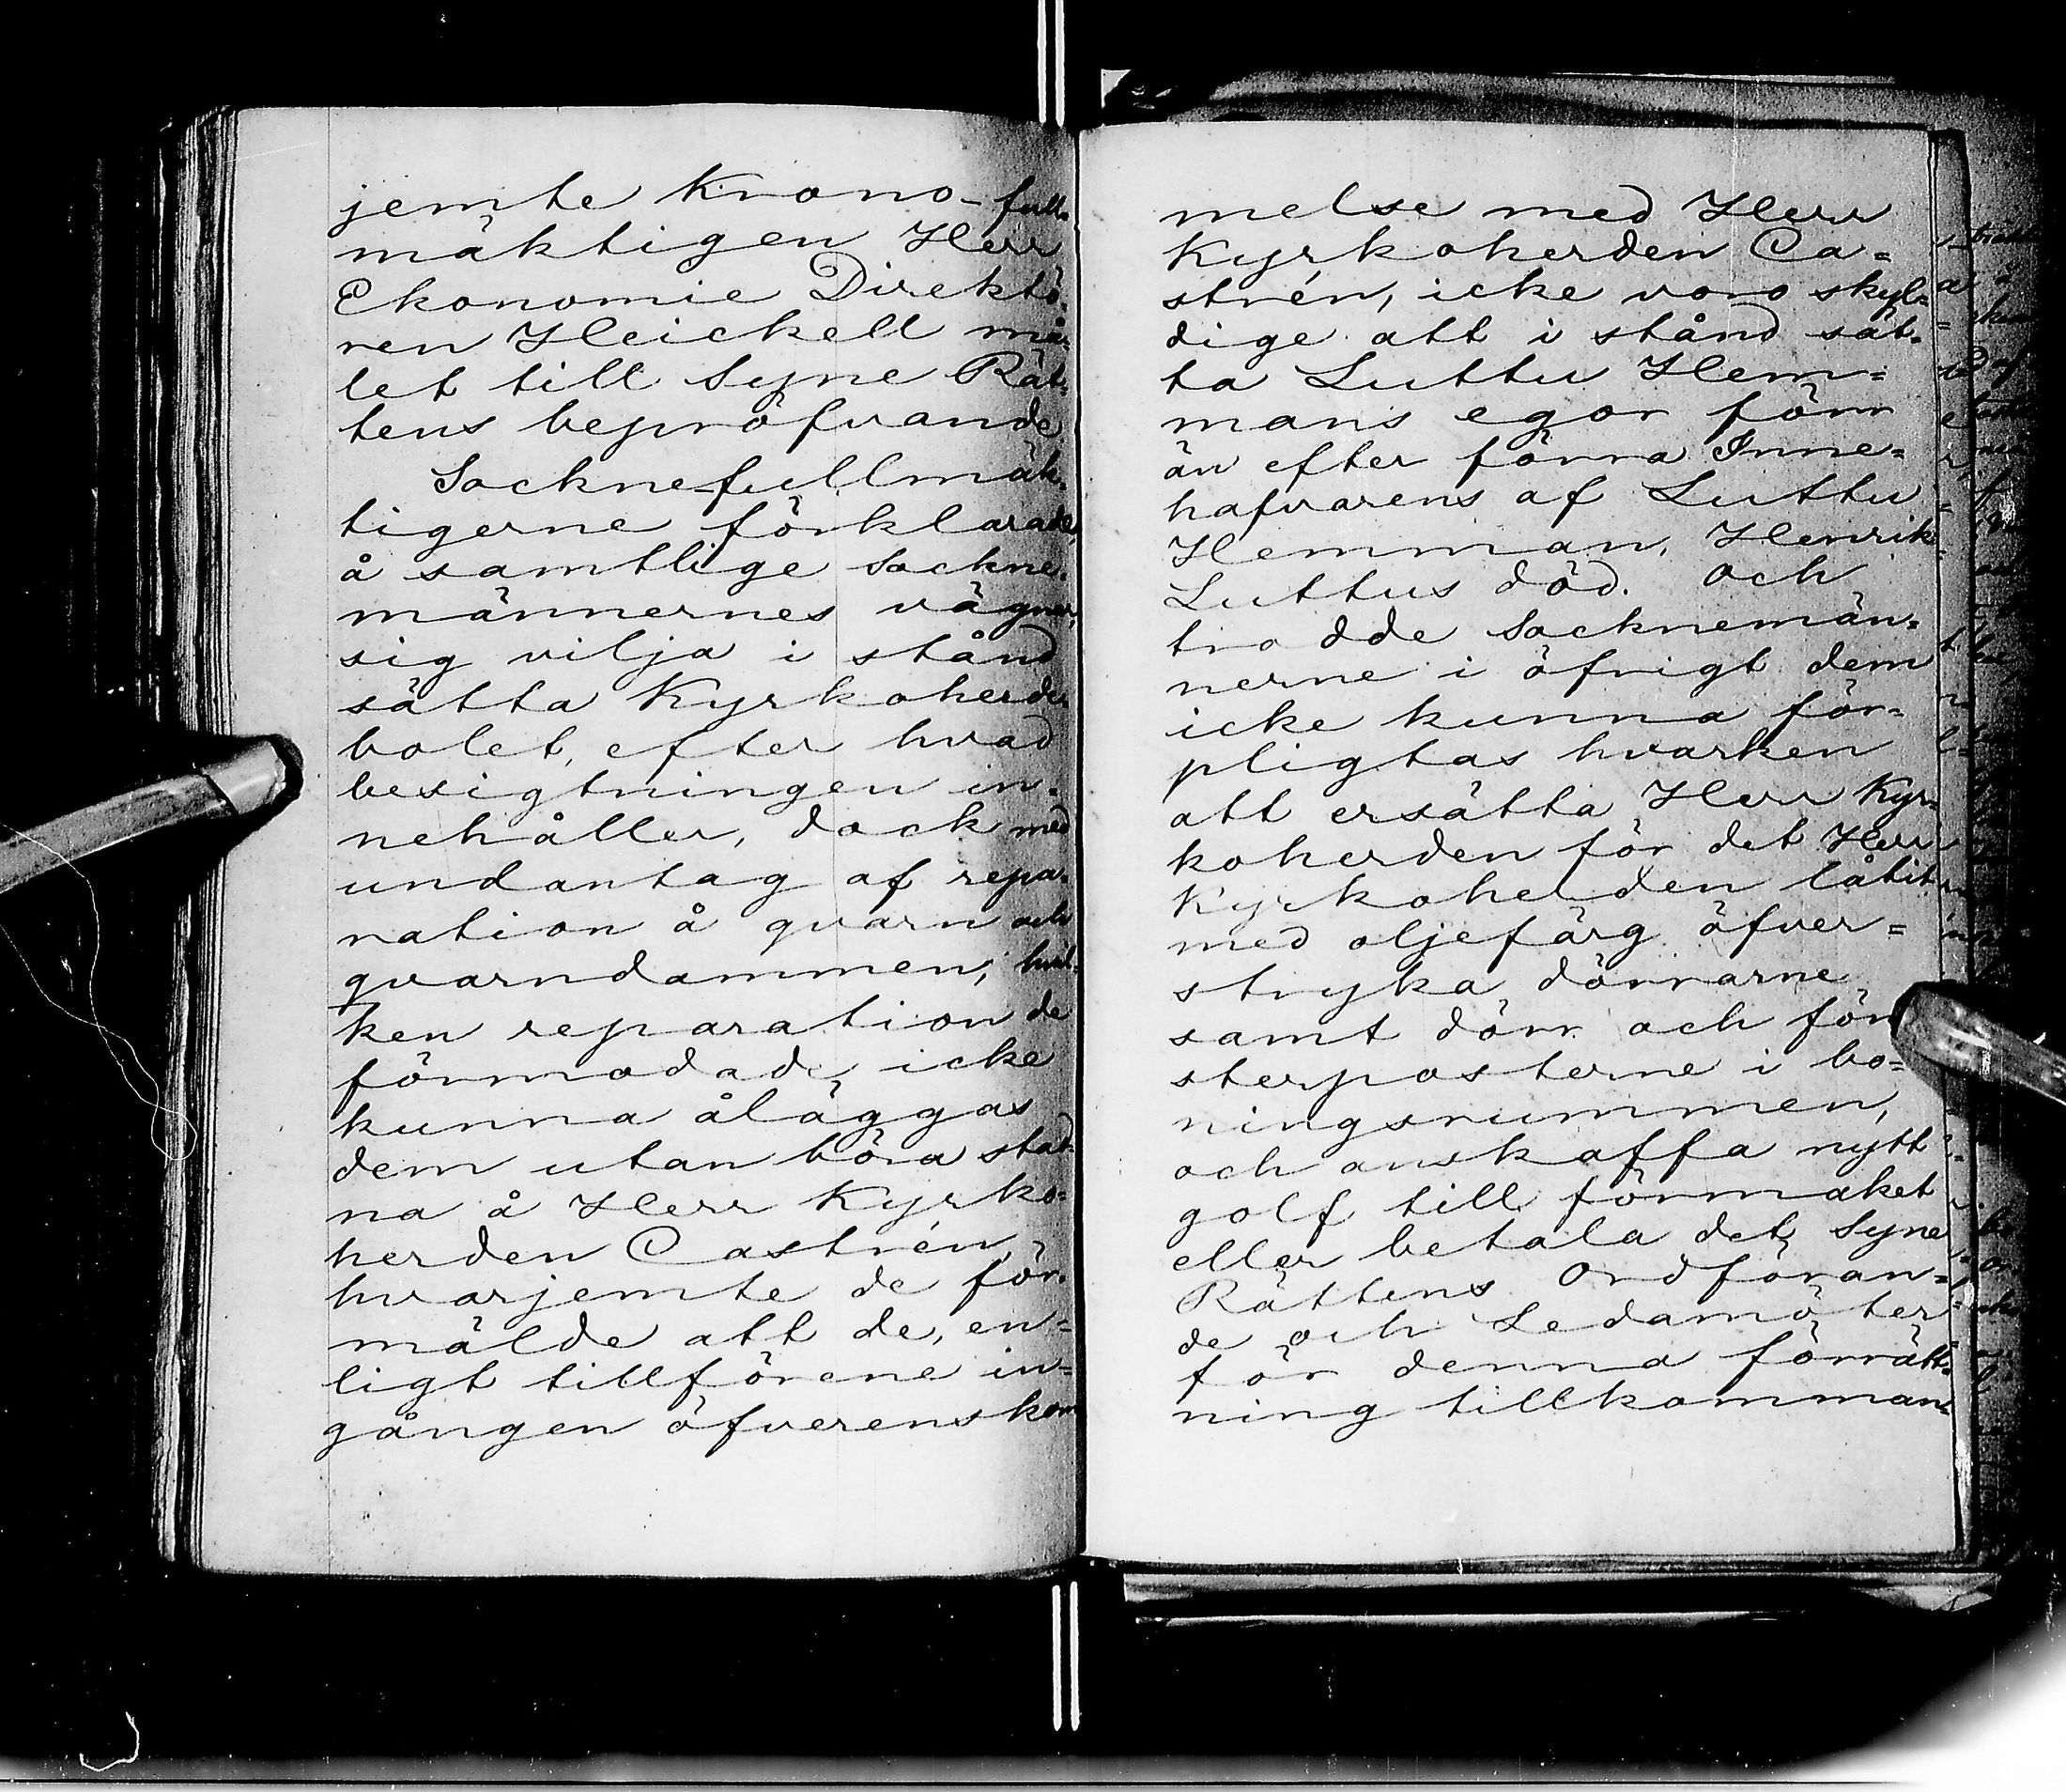 jemte Krono-full-
mäktigen Herr
Ekonomie Direktö-
ren Heickell må-
let till Syne Rät-
tens bepröfvande
Sockne-fullmäk-
tigerne förklarade,
å samtlige Sockne-
männernes vägnar,
sig vilja i stånd
sätta Kyrkoherde
bolet, efter hvad
besigtningen in-
nehåller, dock med
undantag af repa-
ration å qvarn och
qvarndammen, hvil-
ken reparation de
förmodade icke
kunna åläggas
dem utan böra stad-
na å Herr Kyrko-
herden Castrén,
hvarjemte de för-
mälde att de, en-
ligt tillförene in-
gången öfverenskom
melse med Herr
Kyrkoherden Ca-
strén, icke voro skyl-
dige att i stånd sät-
ta Luttu Hem-
mans egor förr
än efter förra Inne-
hafvarens af Luttu
Hemman, Henrik
Luttus död. och
trodde Socknemän-
nerne i öfrigt dem
icke kunna för-
pligtas hvarken
att ersätta Herr Kyr-
koherden för det Herr
Kyrkoherden låtit
med oljefärg öfver-
stryka dörrarne
samt dörr och fön
sterposterne i bo-
ningsrummen,
och anskaffa nytt
golf till förmaket
eller betala det Syne
Rättens Ordföran-
de och Ledamöter
för denna förrätt-
ning tillkomman-